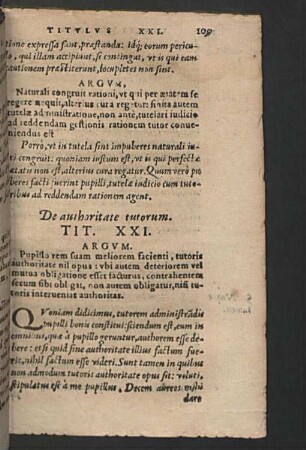 TITVLVS XXI. 109
tione expressa sunt, præstanda: idq; eorum pericu-
lo, qui illam accipiunt, se contingat, vt is qui eam
cautionem præstiterunt, locupletes non sint.
ARGVM.
Naturali congruit rationi, vt qui per ætatem se
regere nequit, alterius cura regatur: finita autem
tutelæ administratione, non ante, tutelari iudicio
ad reddendam gestionis rationem tutor conue-
niendus est
Porrò, vt in tutela sint impuberes naturali iu-
ri congruit: quoniam iustum est, vt is qui perfectæ
ætatis non est, alterius cura regatur. Quum verò pu
beres facti fuerint pupilli, tutelæ iudicio cum tuto-
ribus ad reddendam rationem agent.
De authoritate tutorum.
TIT. XXI.
ARGVM.
Pupillo rem suam meliorem facienti, tutoris
authoritate nil opus: vbi autem deteriorem vel
mutua obligatione esset facturus, contrahentem
secum sibi obligat, non autem obligatur, nisi tu
toris interueniat authoritas.
QVoniam didicimus, tutorem administrãdis
pupilli bonis constitui: sciendum est, eum in
omnibus, quæ à pupillo geruntur, authorem esse de-
bere: et si quid sine authoritate illius factum fue-
rit, nihil factum esse videri. Sunt tamen in quibus
non admodum tutoris authoritate opus sit: veluti,
stipulatus est à me pupillus, Decem aureos mihi
dare